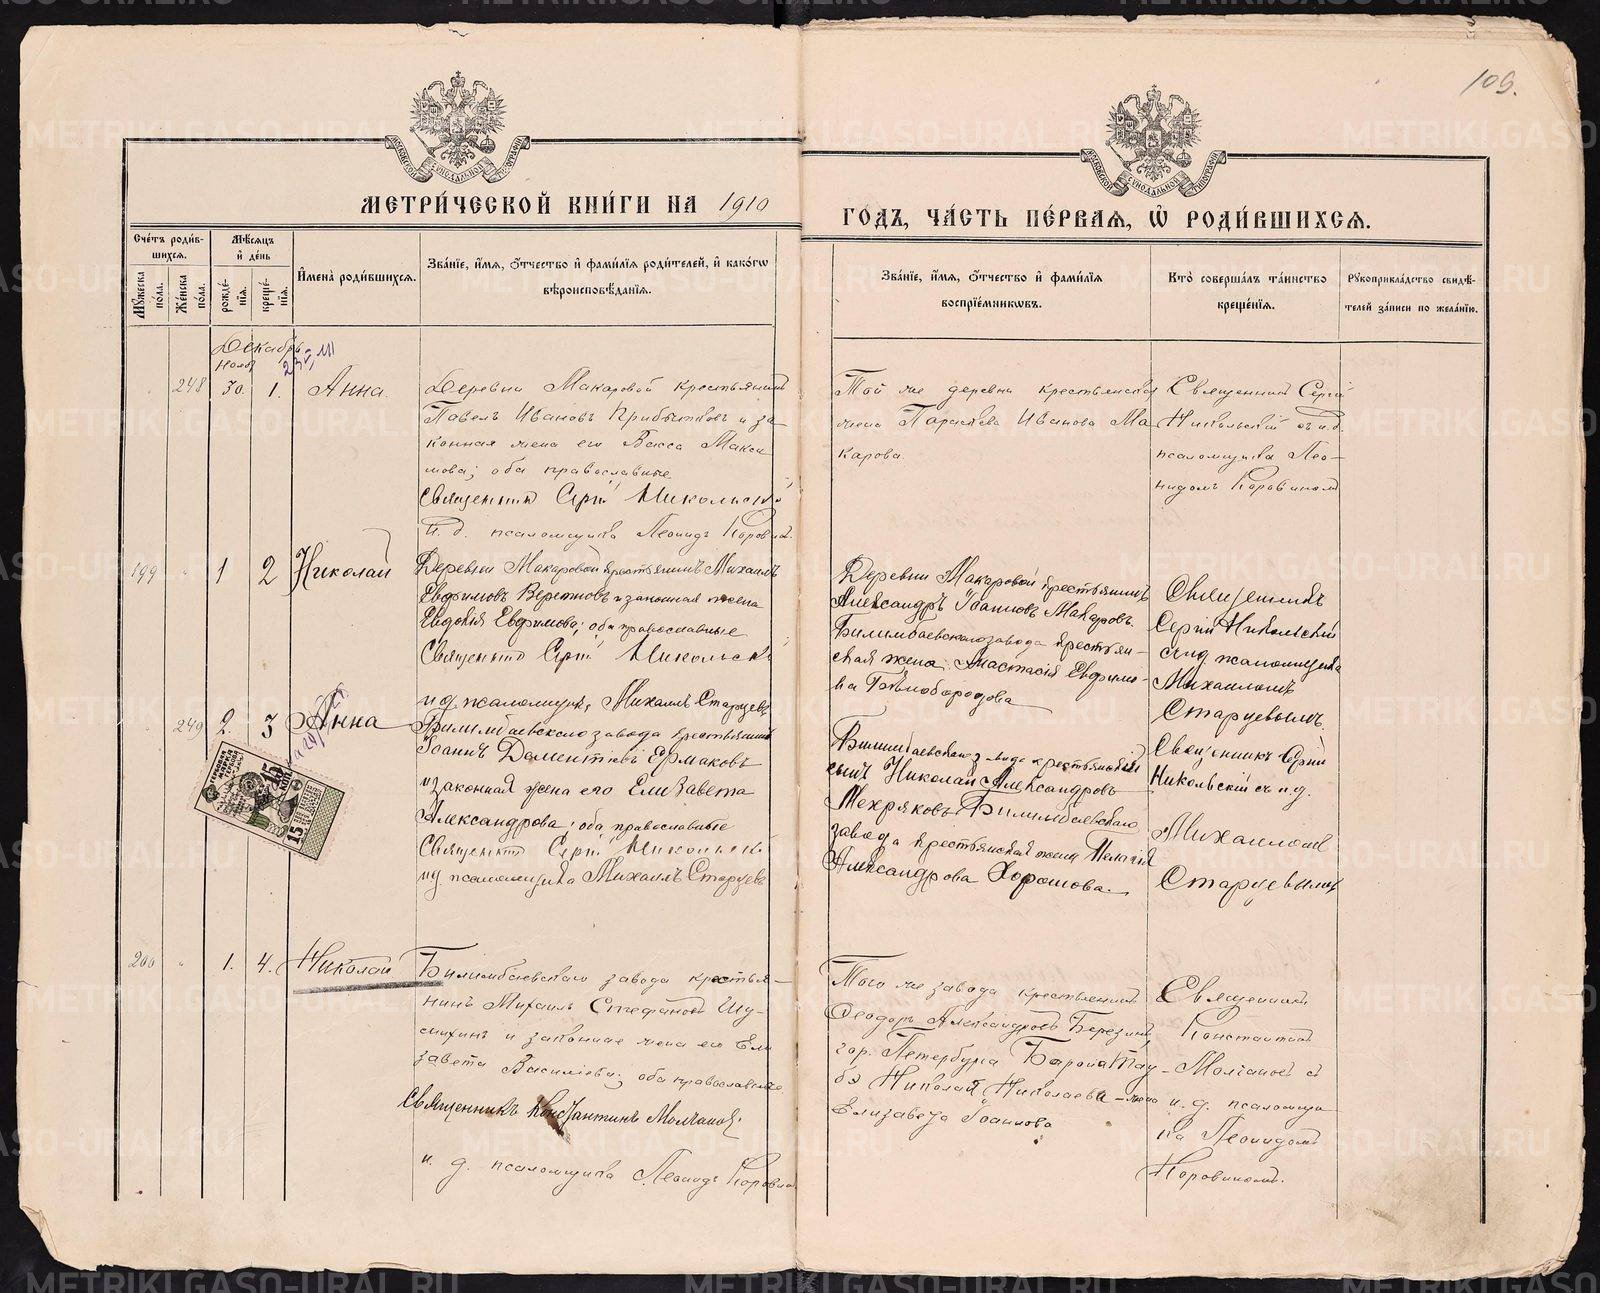 109.
МОСКОВСКОЙ СѴНОДАЛЬНОЙ ТИПОГРАФІИ
МОСКОВСКОЙ СѴНОДАЛЬНОЙ ТИПОГРАФІИ
МЕТРИ́ЧЕСКОЙ КНИ́ГИ НА 1910
ГОДЪ, ЧА́СТЬ ПЕ́РВАЯ, Ѡ РОДИ́ВШИХСЯ.
Сче́тъ роди́в-
шихся.
Мꙋ́жеска по́ла.
Же́нска по́ла.
Мѣ́сяцъ
и́ де́нь
рожде́нія.
креще́нія.
И́мена̀ роди́вшихся.
Зва́ніе, и́мя, ѻ́тчество и́ фами́лія роди́телей, и́ како́гѡ
вѣроисповѣ́данія.
Зва́ніе, и́мя, ѻ́тчество и́ фами́лія
воспріе́мникѡвъ.
Кто̀ соверша́лъ та́инство
креще́нія.
Рꙋкоприкла́дство свидѣ́-
телей за́писи по жела́нію.
Декабрь
Нояб
248 30. 1. Анна.
Деревни Макаровой крестьянинъ
Павелъ Ивановъ Прибытковъ и за-
конная жена его Васса Макси
мова; оба православные
Священникъ Сергій Никольскій
И. д. псаломщика Леонидъ Коровинъ.
Той же деревни крестьянская
жена Параскева Иванова Ма-
карова.
Священникъ Сергій
Никольскій съ и.д.
псаломщика Лео-
нидомъ Коровиномъ
199 " 1 2 Николай
Деревни Макаровой крестьянинъ Михаилъ
Евфимовъ Веретновъ и законная жена
Евдокія Евфимова; оба православные
Священникъ Сергій Никольскій
и д. псаломщика Михаилъ Старцевъ
Деревни Макаровой крестьянинъ
Александръ Іоанновъ Макаровъ.
Билимбаевскаго завода крестьян-
ская жена Анастасія Евфимо-
ва Голобородова
Священникъ
Сергій Никольскій
съ и.д. псаломщика
Михаиломъ
Старцевымъ.
249 2. 3 Анна
Билимбаевскаго завода крестьянинъ
Іоаннъ Дементіевъ Ермаковъ
и законная жена его Елизавета
Александрова; оба православные
Священникъ Сергій Никольскій
и д. псаломщика Михаилъ Старцевъ
Билимбаевскаго завода крестьянскій
сынъ Николай Александровъ
Мехряковъ Билимбаевскаго
завода крестьянская жена Пелагія
Александрова Хорошова.
Священникъ Сергій
Никольскій съ и.д.
Михаиломъ
Старцевымъ
15 КОП.
15
200 " 1. 4. Николай
Билимбаевскаго завода крестья-
нинъ Михаилъ Стефановъ Шу-
михинъ и законная жена его Ели
завета Василіева; оба православные.
Священникъ Константинъ Молчановъ.
и. д. псаломщика Леонидъ Коровинъ
Того же завода крестьянинъ
Ѳеодоръ Александровъ Березинъ
гор. Петербурга Барона Тау-
бэ Николая Николаева - жена
Елизавета Іоаннова
Священникъ
Константинъ
Молчановъ съ
и. д. псаломщи
ка Леонидомъ
Коровиномъ.
METRIKI.GASO-URAL.RU